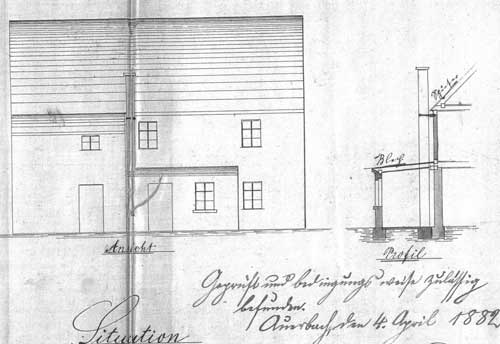 Schiefer
Blech
Ansicht
Profil
Geprüft und bedingungsweise zulässig
befunden.
Auerbach, den 4. April 1882
Situation